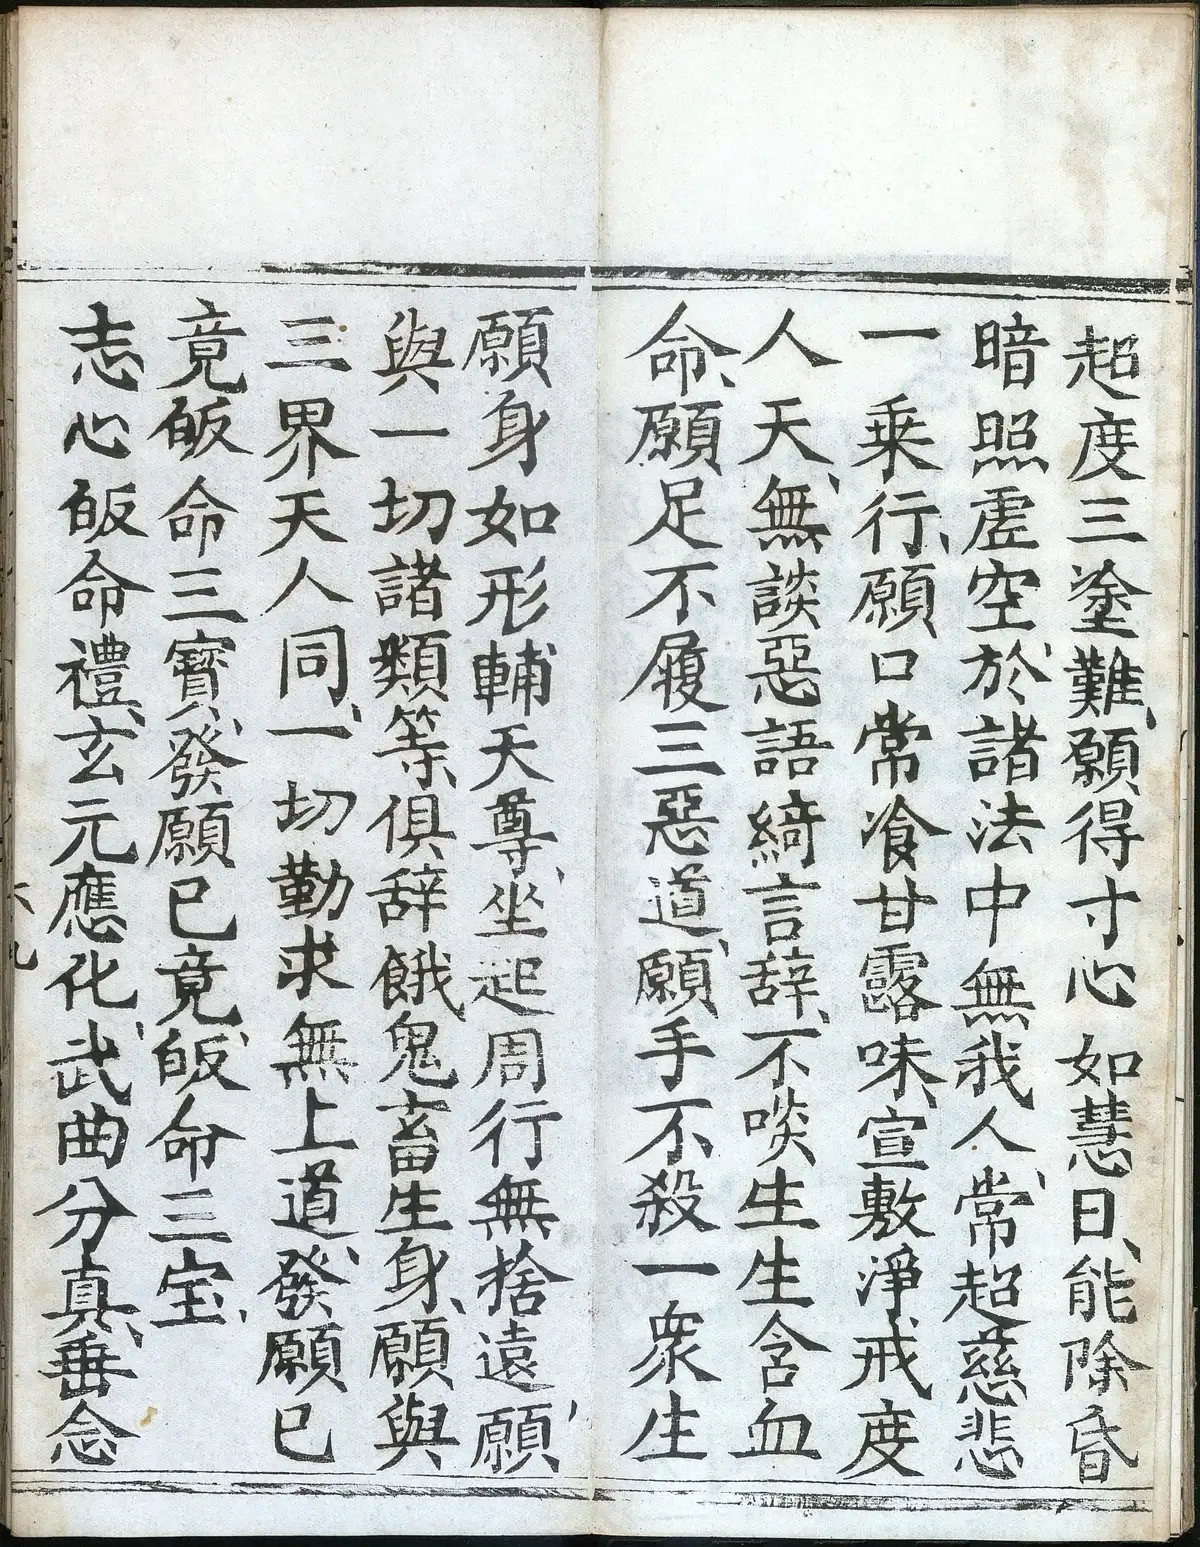 超度三塗難、願得寸心如慧日、能除昏
暗照虗空、於諸法中無我人、常超慈悲
一乗行、願口常飡甘露味、宣敷淨戒度
人天、無談惡語綺言辞、不啖生生含血
命、願足不履三惡道、願手不殺一衆生
願身如形輔天尊、坐起周行無捨遠、願
與一切諸類等、俱辞餓鬼畜生身、願與
三界天人同、一切勤求無上道、發願已
竟皈命三寳、發願已竟、皈命三宝、
志心皈命禮、玄元應化、武曲分真、垂念